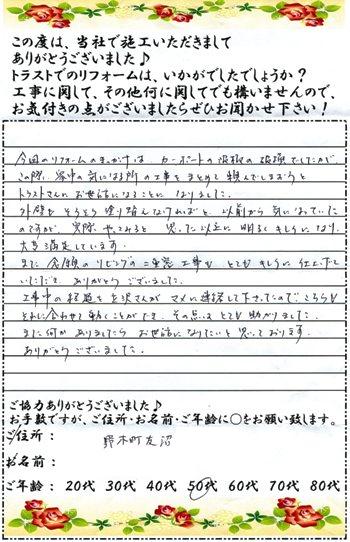 この度は、当社で施工いただきまして
ありがとうございました♪
トラストでのリフォームは、いかがでしたでしょうか？
工事に関して、その他何に関してでも構いませんので、
お気付きの点がございましたらぜひお聞かせ下さい！
今回のリフォームのきっかけは、カーポートの波板の破損でしたが、
この際、家中の気になる所の工事をまとめて頼んでしまおうと
トラストさんにお世話になることになりました。
外壁もそろそろ塗り替えなければと以前から気になっていた
のですが、実際やってみると思った以上に明るくキレイになり、
大変満足しています。
また、念願のリビングの二重窓工事もとてもキレイに仕上げて
いただき、ありがとうございました。
工事中の経過を さんがマメに連絡して下さったのでこちらも
それに合わせて動くことができ、その点はとても助かりました。
また何かありましたらお世話になりたいと思っております。
ありがとうございました。
ご協力ありがとうございました♪
お手数ですが、ご住所・お名前・ご年齢に○をお願い致します。
ご住所： 野木町友沼
お名前：
ご年齢： 20代 30代 40代 50代 60代 70代 80代